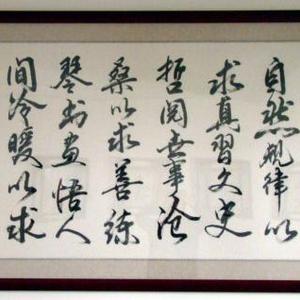 自然规律以
求真习文史
哲阅世事沧
桑以求善练
琴书画悟人
间冷暖以求